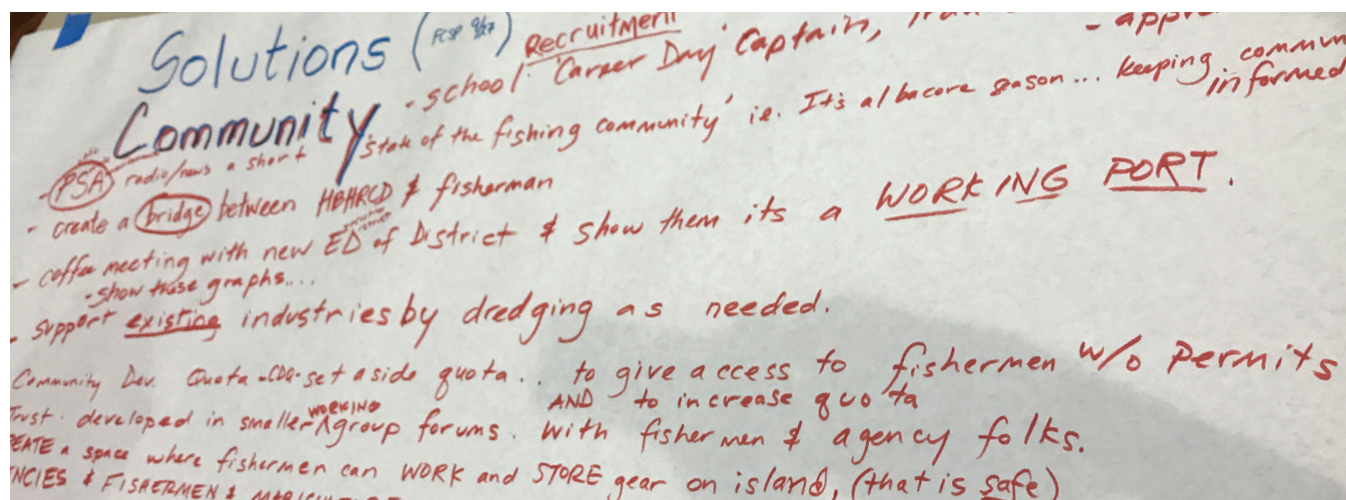 Solutions (FCSP 9/27)
Recruitment
- school 'Career Day' Captain,
Community
'State of the fishing community' ie. It's albacore season... keeping commun
informed
- PSA radio/news a short
- create a bridge between HBHRCD & fisherman
- coffee meeting with new ED of District & show them its a WORKING PORT.
- show these graphs....
- support existing industries by dredging as needed.
Community Dev. Quota - CDQ - set aside quota.. to give access to fishermen w/o Permits
AND to increase quota
Trust. developed in smaller WORKING group forums. With fishermen & agency folks.
EATE a space where fishermen can WORK and STORE gear on island, (that is safe)
NCIES & FISHERMEN &